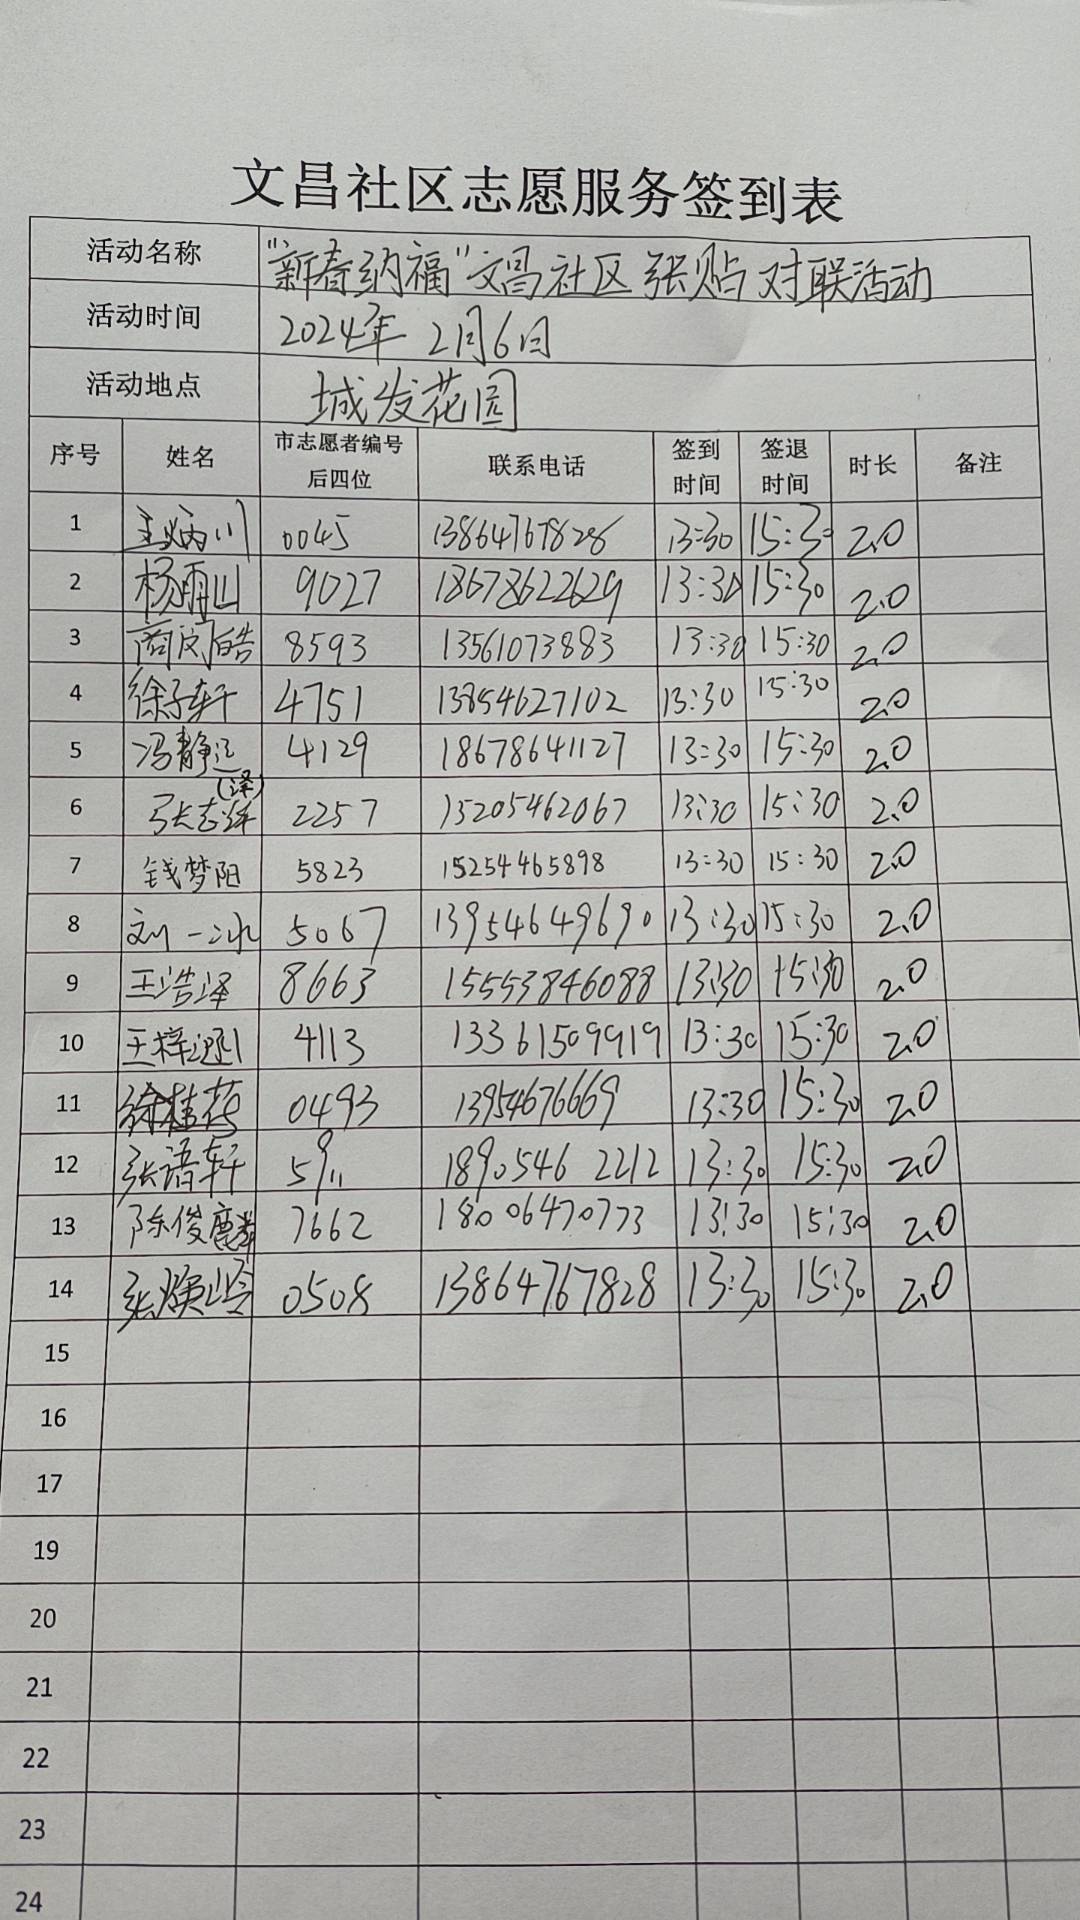 文昌社区志愿服务签到表
活动名称 "新春纳福"文昌社区张贴对联活动
活动时间 2024年2月6日
活动地点 城发花园
序号 姓名 市志愿者编号后四位 联系电话 签到时间 签退时间 时长 备注
1 王炳川 0045 13864767828 13:30 15:30 2.0
2 杨雨山 9027 18678622629 13:30 15:30 2.0
3 商闵皓 8593 13561073883 13:30 15:30 2.0
4 徐子轩 4751 13854627102 13:30 15:30 2.0
5 冯静远 4129 18678641127 13:30 15:30 2.0
6 张志泽(泽) 2257 13205462067 13:30 15:30 2.0
7 钱梦阳 5823 15254465898 13:30 15:30 2.0
8 刘一冰 5067 13954649690 13:30 15:30 2.0
9 王浩泽 8663 15553846088 13:30 15:30 2.0
10 王梓 4113 13361509919 13:30 15:30 2.0
11 徐桂荷 0493 13954676669 13:30 15:30 2.0
12 张语轩 5911 18905462212 13:30 15:30 2.0
13 陈俊麟 7662 18006470773 13:30 15:30 2.0
14 张焕岭 0508 13864767828 13:30 15:30 2.0
15
16
17
19
20
21
22
23
24